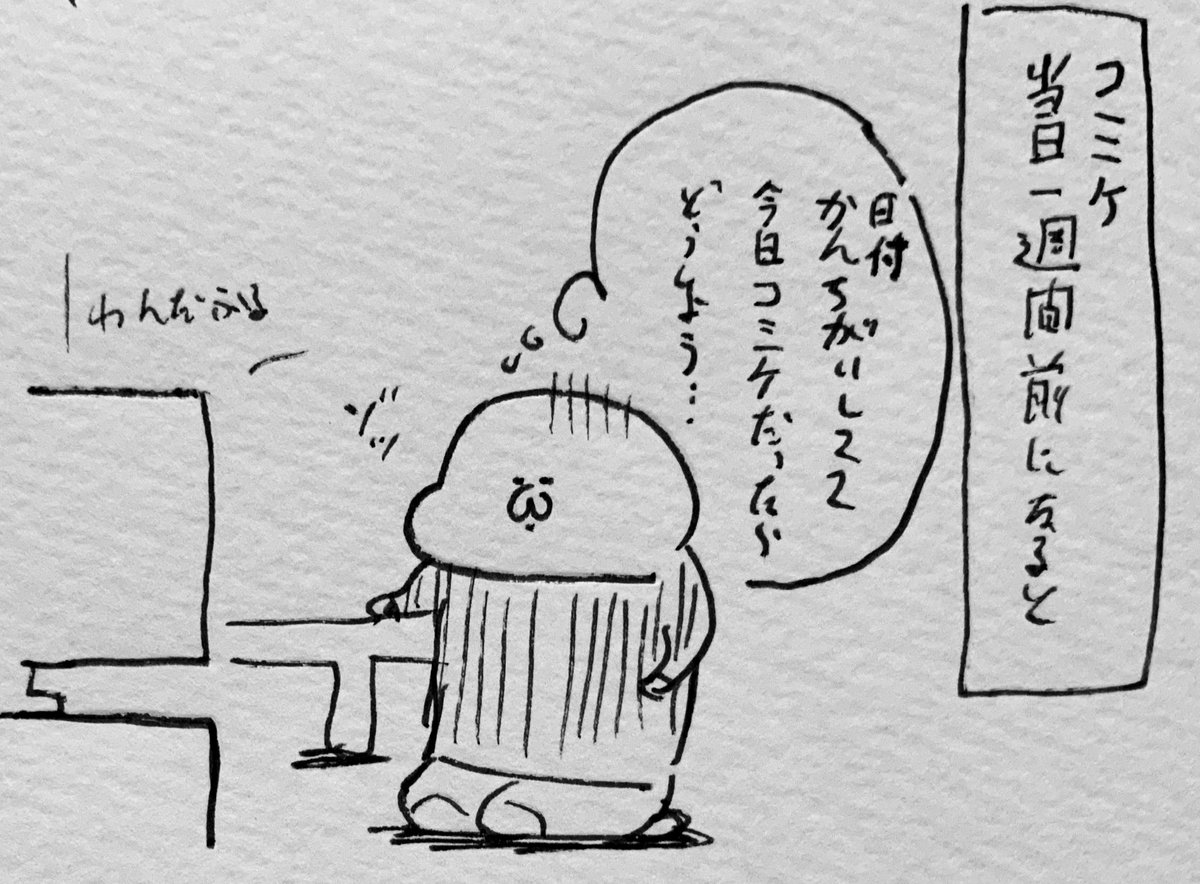 コミケ
当日一週間前になると
日付
かんちがいしてて
今日コミケだったら
どうしよう…
ゾッ
わんだふる